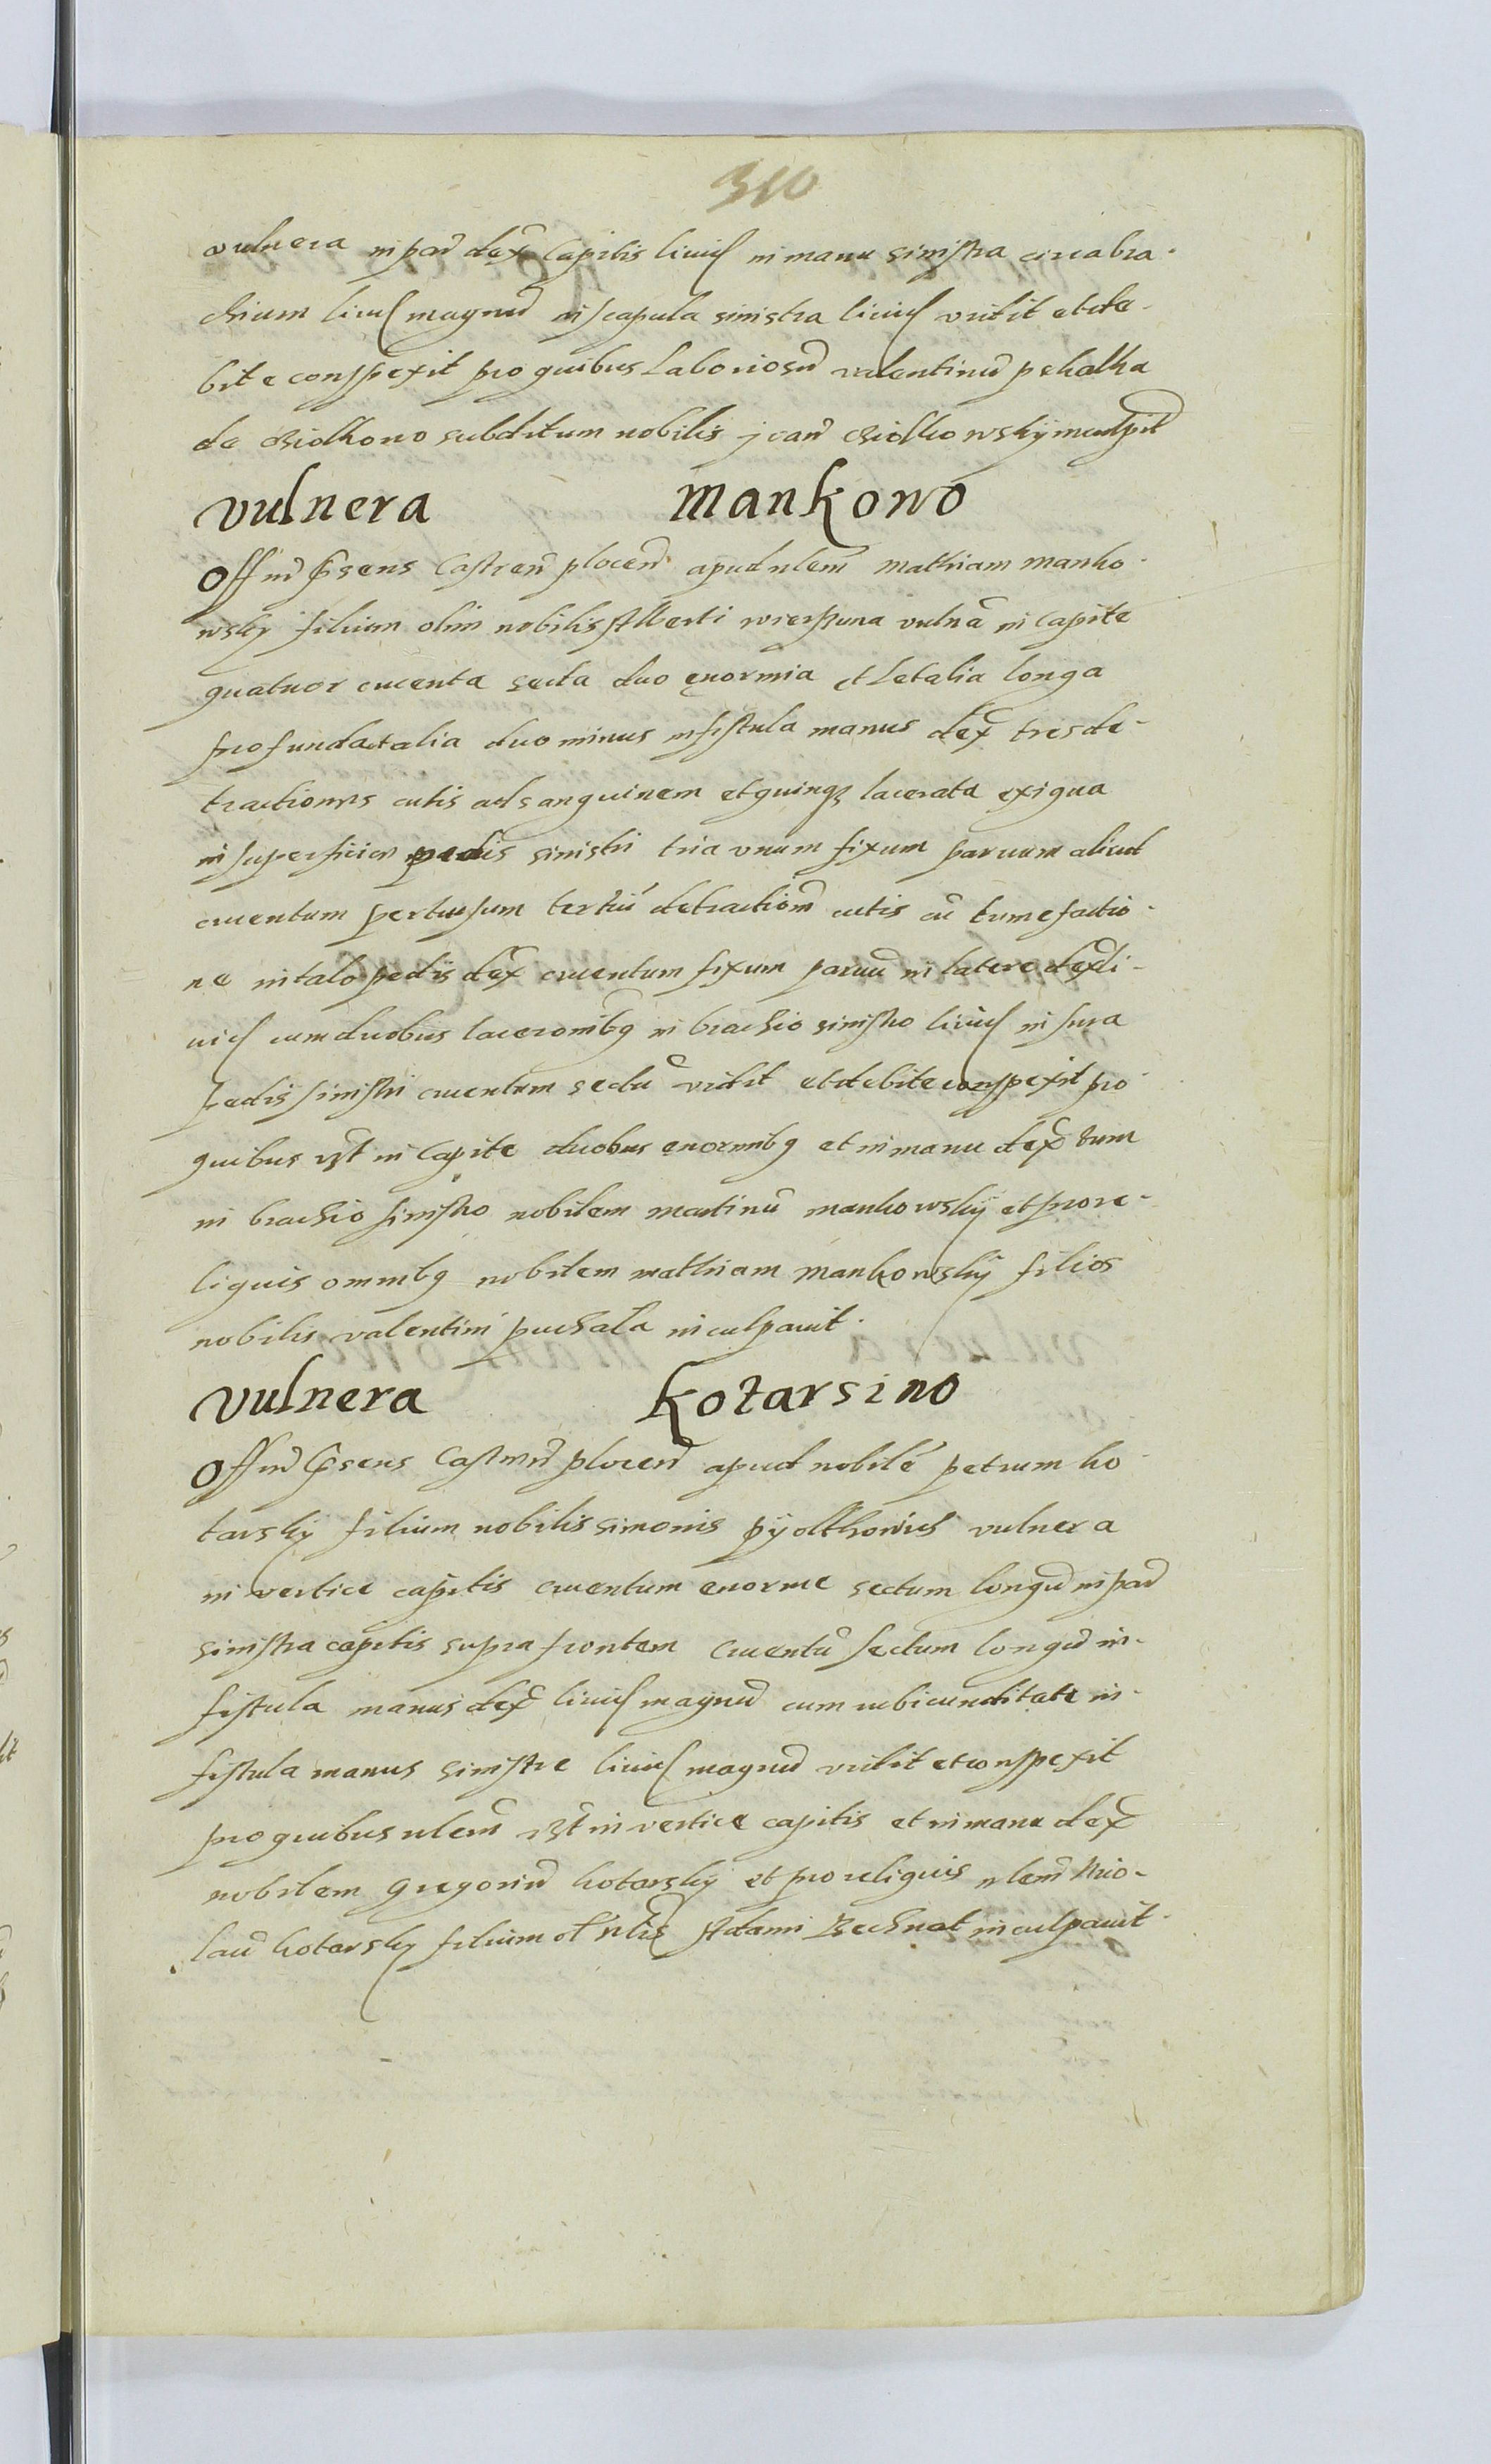 310
vulnera in par dex Capitis livid in manu sinistra circa bra-
chium livid magnu in scapula sinistra livid vidit et de-
bite conspexit pro quibus Laboriosu valentinu pekalka
de chiolkono subditum nobilis joan chiolkowskÿ inculpat
vulnera mankowo
Offm psens Castren plocen apud nlem mathiam manko-
wskÿ filium olim nobilis Alberti wierszuna vulna in capite
quatuor cruenta secta duo enormia et Letalia longa
profunda et alia duo minus in fistula manus dex tres de-
tractiones cutis ad sanguinem et quinqz lacerata exigua
in superficiem pedis sinistri tria vnum fixum parvum aliud
cruentum pertusum tertiu detractiom cutis cu tumefactio-
ne in talo pedis dex cruentum fixum parvu in latere dex li-
vid cum duobus laceronibq in brachio sinistro livid in sura
pedis sinistri cruentum sectu vidit et debite conspexit pro
quibus vzt in Capite duobus enormibq et in manu dex tum
in brachio sinistro nobilem martinu mankowskÿ et pro re-
liquis omnibq nobilem mathiam mankowskÿ filios
nobilis valentini puchala inculpavit.
vulnera kotarsino
Offm psens Castren plocen apud nobile petrum ko-
tarskÿ filium nobilis simonis pÿolthowich vulnera
in vertice capitis cruentum enorme sectum longu in par
sinistra capitis supra frontem cruentu sectum longu in-
fistula manus dex livid magnu cum rubicunditate in-
fistula manus sinistre livid magnu vidit et conspexit
pro quibus nlem vzt in vertice capitis et in manu dex
nobilem gregoriu kotarskÿ et pro reliquis nlem Nico-
lau kotarskÿ filium ol nlis Adami inculpavit.